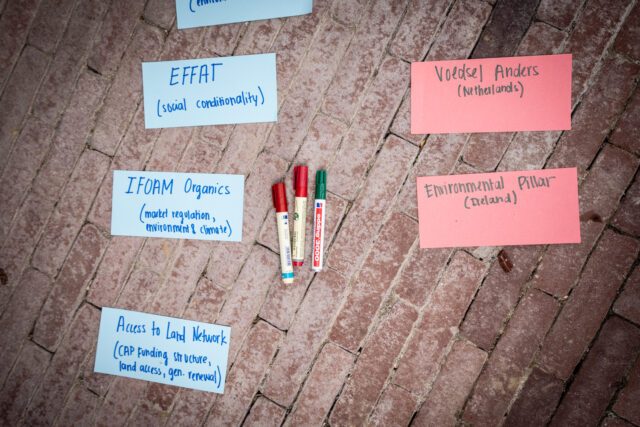 EFFAT
(social conditionality)
IFOAM Organics
(market regulation,
environment & climate)
Access to Land Network
(CAP Funding structure,
land access, gen. renewal)
edding 3000
Voedsel Anders
(Netherlands)
Environmental Pillar
(Ireland)